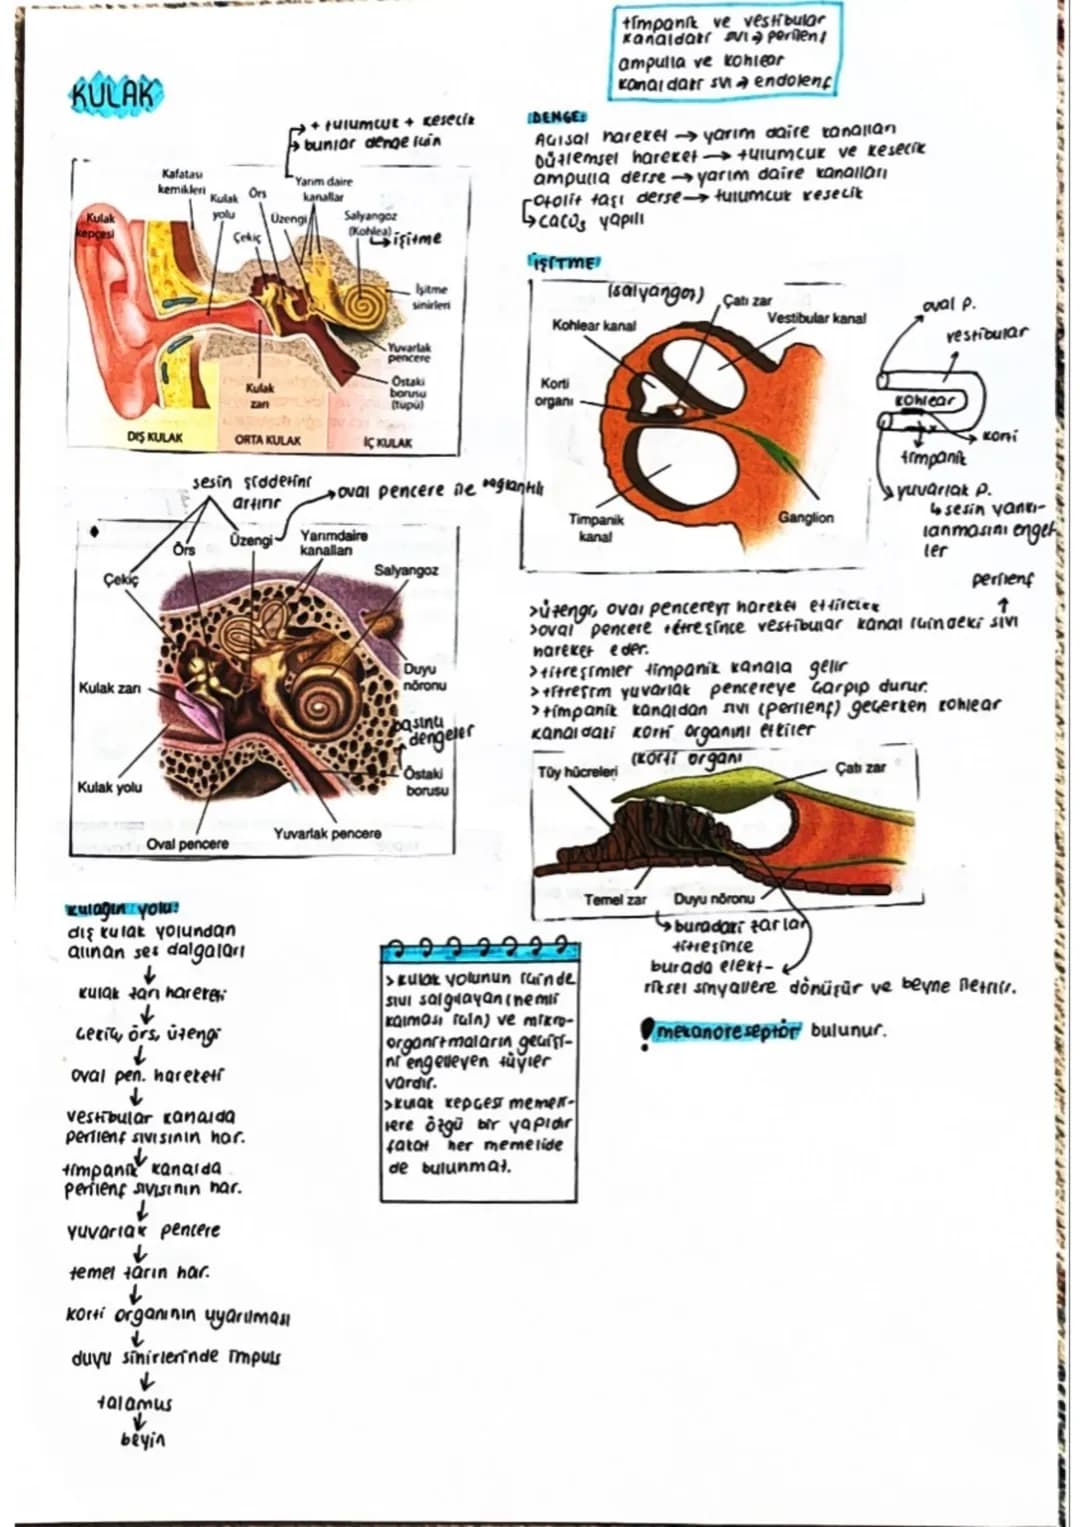 KULAK
timpanik ve vestibular
kanaldaki sıvı → perilenf
ampulla ve kohlear
kanaldaki sıvı → endolenf
→ + tulumcuk + kesecik
→ bunlar denge için
Kafatası
kemikleri
Kulak
yolu
Örs
Yarım daire
kanallar
Kulak
kepçesi
Çekiç
Üzengi
Salyangoz
(Kohlea)
→ işitme
İşitme
sinirleri
Yuvarlak
pencere
Östaki
borusu
(tüpü)
Kulak
zarı
DIŞ KULAK
ORTA KULAK
İÇ KULAK
sesin şiddetini
artırır
→ oval pencere ile bağlantılı
Örs
Üzengi
Yarımdaire
kanalları
Çekiç
Salyangoz
Kulak zarı
Duyu
nöronu
basıncı
dengeler
Östaki
borusu
Kulak yolu
Yuvarlak pencere
Oval pencere
kulağın yolu:
dış kulak yolundan
alınan ses dalgaları
↓
kulak zarı hareketi
↓
çekiç, örs, üzengi
↓
oval pen. hareketi
↓
vestibular kanalda
perilenf sıvısının har.
↓
timpanik kanalda
perilenf sıvısının har.
↓
yuvarlak pencere
↓
temel zarın har.
↓
korti organının uyarılması
↓
duyu sinirlerinde impuls
↓
talamus
↓
beyin
> kulak yolunun içinde
sıvı salgılayan (nemli
kalması için) ve mikro-
organizmaların geçişi-
ni engelleyen tüyler
vardır.
> kulak kepçesi memeli-
lere özgü bir yapıdır
fakat her memelide
de bulunmaz.
DENGE:
Açısal hareket → yarım daire kanalları
Düzlemsel hareket → tulumcuk ve kesecik
ampulla derse → yarım daire kanalları
otolit taşı derse → tulumcuk kesecik
→ CaCO₃ yapılı
İŞİTME
(salyangoz)
Çatı zar
Kohlear kanal
Vestibular kanal
Korti
organı
Timpanik
kanal
Ganglion
oval p.
vestibular
kohlear
korti
timpanik
yuvarlak p.
↳ sesin yankı-
lanmasını engel-
ler
perilenf
↑
> üzengi, oval pencereyi hareket ettirecek
> oval pencere titreşince vestibular kanal içindeki sıvı
hareket eder.
> titreşimler timpanik kanala gelir
> titreşim yuvarlak pencereye çarpıp durur.
> timpanik kanaldan sıvı (perilenf) geçerken kohlear
kanaldaki korti organını etkiler
(korti organı
Tüy hücreleri
Çatı zar
Temel zar
Duyu nöronu
↳ buradaki zarlar
titreşince
burada elekt-
riksel sinyallere dönüşür ve beyne iletilir.
! mekanoreseptör bulunur.